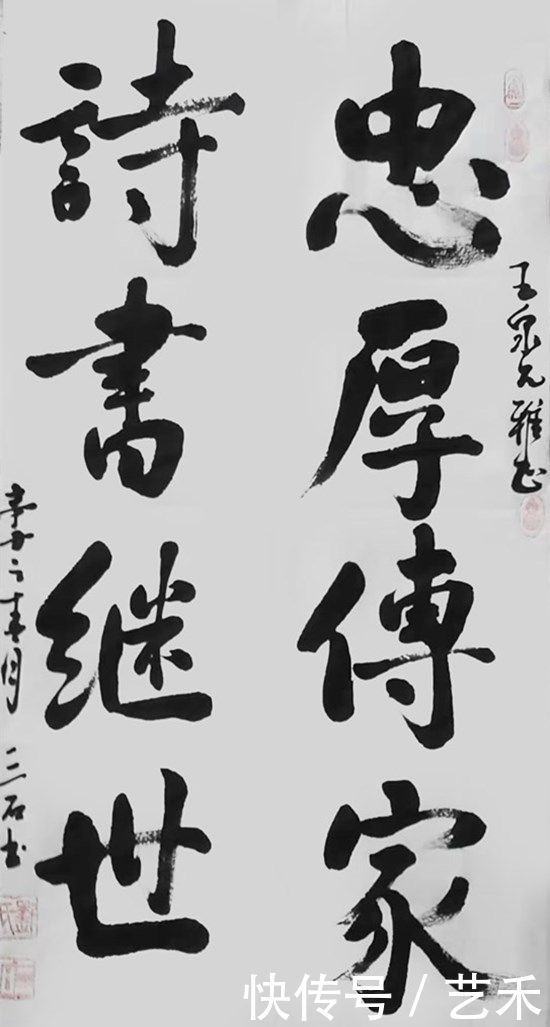 忠厚傳家
詩書继世
王泉兄雅正
辛丑之春月 三石书
快传号 / 艺禾